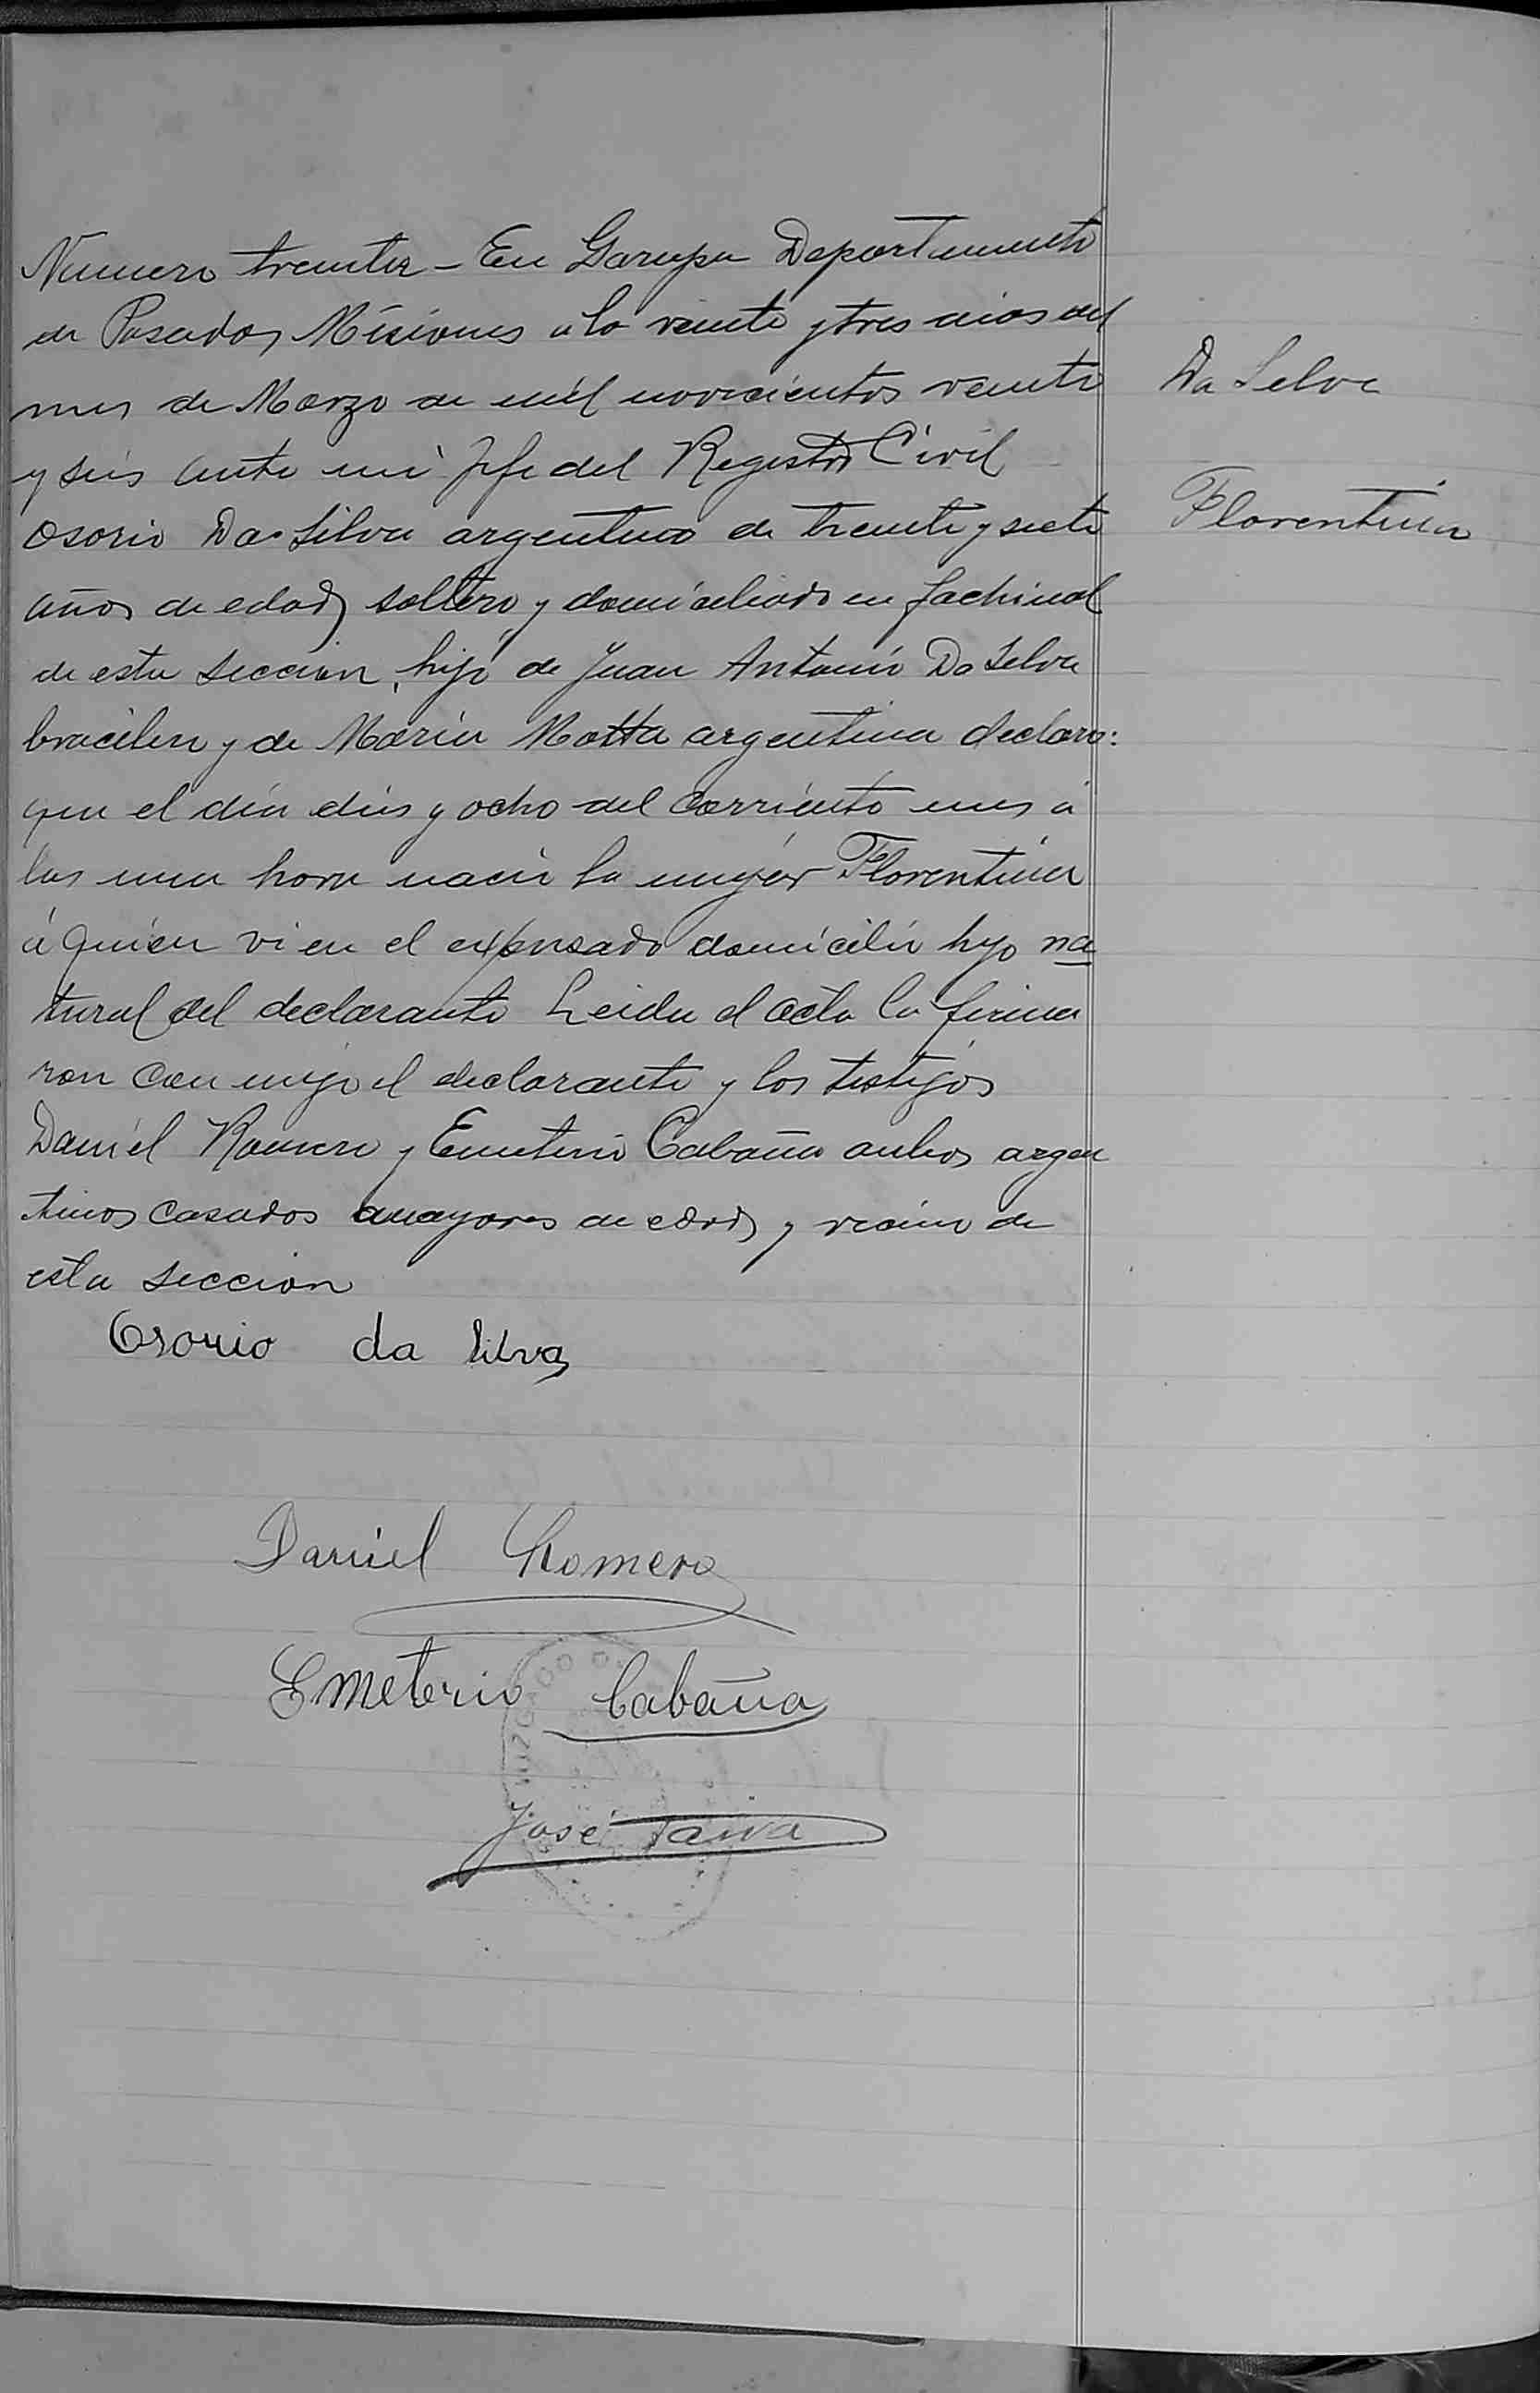 Numero treinta - En Garupa Departamento
de Posadas Misiones a lo veinte y tres dias del
mes de Marzo de mil novecientos veinte
y seis ante mi Jefe del Registro Civil
Osorio Da Silva argentino de treinta y siete
años de edad, soltero y domiciliado en Fachinal
de esta seccion, hijo de Juan Antonio Da Silva
bracilero y de Maria Motta argentina declaro:
que el dia dies y ocho del corriente mes á
las una hora nacio la mujer Florentina
á quien vi en el expresado domicilio hijo na
tural del declarante Leida el acta la firma
ron con migo el declarante y los testigos
Daniel Romero y Emeterio Cabaña ambos argen
tinos casados mayores de edad, y vecino de
esta seccion
Osorio da Silva
Daniel Romero
Emeterio Cabaña
José Paiva
JUZGADO D
Da Silva
Florentina